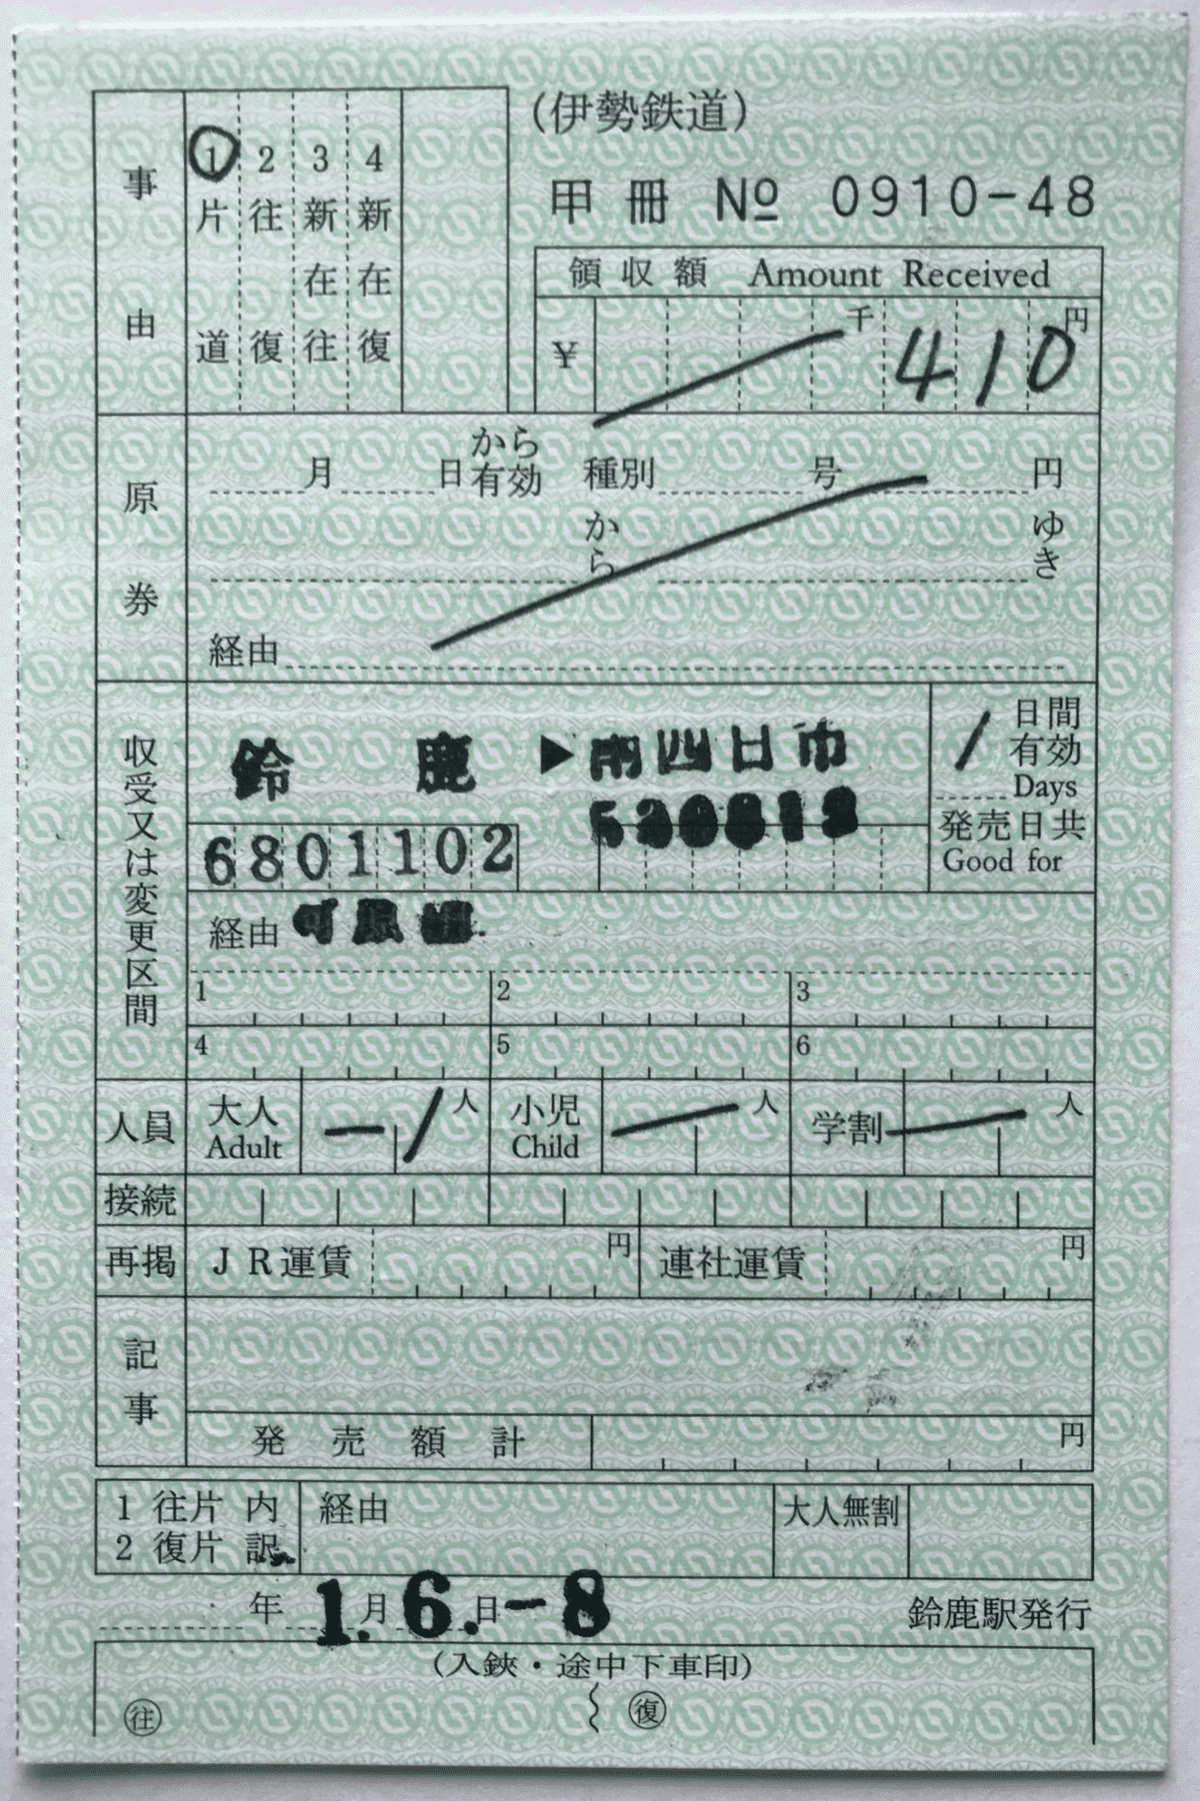 (伊勢鉄道)
甲冊 № 0910-48
事由
1 片道
2 往復
3 新在往
4 新在復
領収額 Amount Received
¥ 千 410 円
原券
月 日 から有効 種別 号 円
から ゆき
経由
収受又は変更区間
鈴鹿 ▶ 南四日市
6801102
1 日間有効 Days
発売日共 Good for
経由
1 2 3
4 5 6
人員 大人 Adult 1 人 小児 Child 人 学割 人
接続
再掲 JR運賃 円 連社運賃 円
記事
発売額計 円
1 往片 内訳 経由 大人無割
2 復片
年 月 日 1.6.-8 鈴鹿駅発行
(入鋏・途中下車印)
往 復